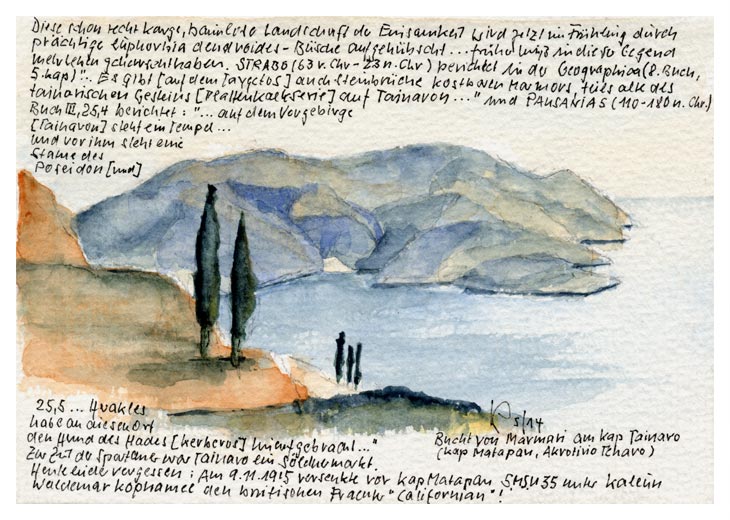 Diese schon recht karge, baumlose Landschaft der Einsamkeit wird jetzt im Frühling durch
prächtige Euphorbia dendroides-Büsche aufgehübscht... früher muß in dieser Gegend
mehr Leben geherrscht haben. STRABO (63 v.Chr - 23 n.Chr) berichtet in der Geographica (8. Buch,
5. Kap) "... Es gibt [auf dem Taygetos] auch Steinbrüche kostbaren Marmors, teils alt des
tainarischen Gesteins [Plattenkalkserie] auf Tainaron..." und PAUSANIAS (110-180 n. Chr.)
Buch III, 25,4 berichtet: "... auf dem Vorgebirge
[Tainaron] steht ein Tempel...
und vor ihm steht eine
Statue des
Poseidon [und]
25,5 ... Herakles
habe an diesem Ort
den Hund des Hades [Kerberos] hinaufgebracht..."
Zur Zeit der Spartaner war Tainaro ein Söldnermarkt.
Heute leider vergessen: Am 9.11.1915 versenkte vor Kap Matapan SMSU 35 unter Kaleun
Waldemar Kophamel den britischen Frachter "Californian"!
5/14
Bucht von Marmari am Kap Tainaro
(Kap Matapan, Akrotirio Ténaro)